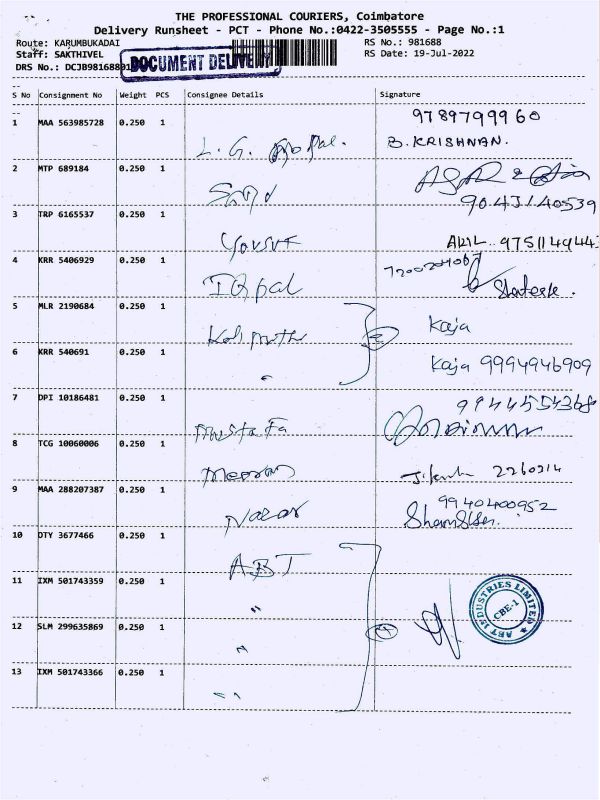 THE PROFESSIONAL COURIERS, Coimbatore
Delivery Runsheet - PCT - Phone No.:0422-3505555 - Page No.:1
Route: KARUMBUKADAI RS No.: 981688
Staff: SAKTHIVEL RS Date: 19-Jul-2022
DRS No.: DCJB98168801
DOCUMENT DELIVERY
S No Consignment No Weight PCS Consignee Details Signature
1 MAA 563985728 0.250 1 L. G. Gopal. 9789799960
B. KRISHNAN.
2 MTP 689184 0.250 1
9043140539
3 TRP 6165537 0.250 1 Yousuf
4 KRR 5406929 0.250 1 Iqpal
5 MLR 2190684 0.250 1 Kaja
6 KRR 540691 0.250 1 " Kaja 9994946909
7 DPI 10186481 0.250 1 Mustafa
8 TCG 10060006 0.250 1 Meeran
9 MAA 288207387 0.250 1 Nazar 9940400952
10 DTY 3677466 0.250 1 ABT
11 IXM 501743359 0.250 1 "
12 SLM 299635869 0.250 1 " 4
13 IXM 501743366 0.250 1 "
ABT INDUSTRIES LIMITED
CBE-1